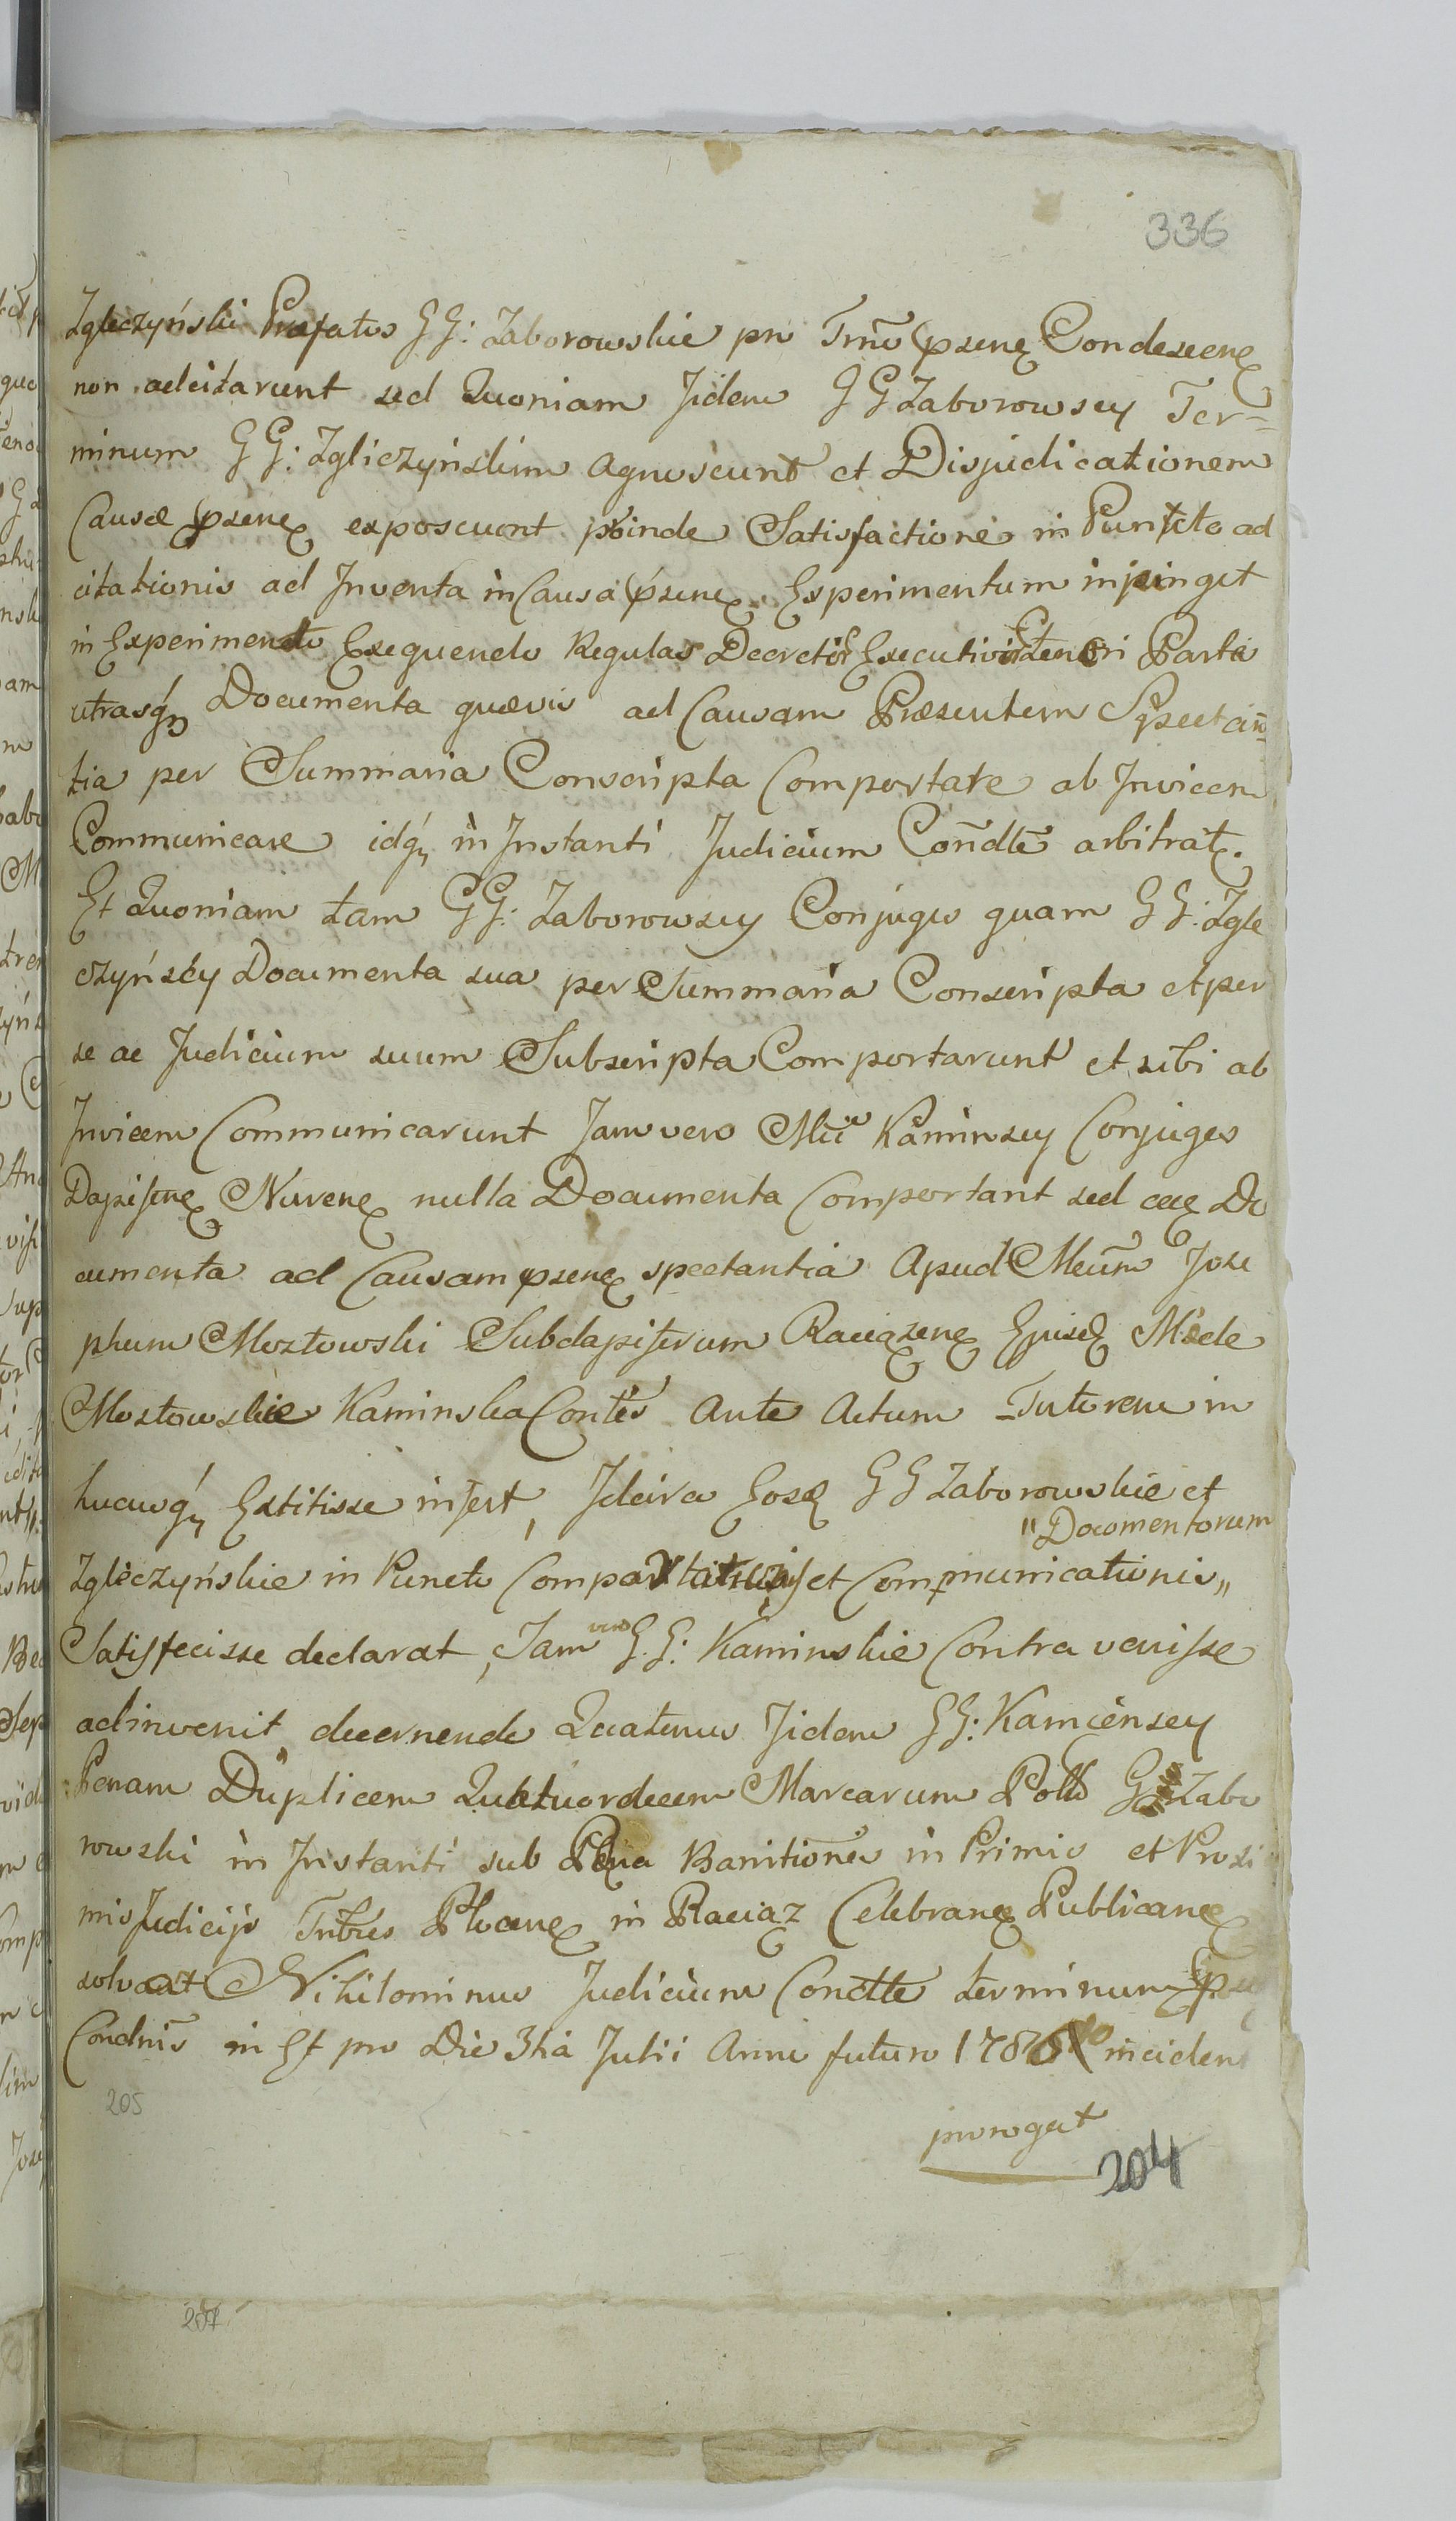 336
Zgleczyński Præfatos GG: Zaborowskie pro Trño psenę Condescenę
non adcitarunt sed Quoniam Jidem GG Zaborowscy Ter=
minum GG: Zgliczyńskim Agnoscunt et Disjudicationem
Causæ psenę exposcunt proinde Satisfactione in Puncto ad
citationis ad Inventa in Causa psenę Experimentum injungit
in Experimento Exequendo Regulas Decretor Executivor teneri Partes
utrasq Documenta quævis ad Causam Præsentem Spectan̄
tia per Summaria Conscripta Comportare ab Invicem
Communicare idq in Instanti Judicium Con̄dle arbitratę.
Et Quoniam tam GG: Zaborowscy Conjuges quam GG: Zgle
czyńscy Documenta sua per Summaria Conscripta et per
se ac Judicium suum Subscripta Comportarunt et sibi ab
Invicem Communicarunt Jam vero Mci Kaminscy Conjuges
Dapifenę Nurenę nulla Documenta Comportant sed Do
cumenta ad Causam psenę spectantia Apud Mcum Jose
phum Mostowski Subdapiferum Raciązenę
Mostowskie Kaminska Ante Actum Tutorem in
hucusq Extitisse infert, Idcirco Eosdę GG Zaborowskie et
"Documentorum
Zgleczyńskie in Puncto Comportationis et Communicationis"
Satisfecisse declarat, Jam vero G.G: Kaminskie Contra venisse
adinvenit, decernendo Quatenus Jidem GG: Kamienscy
Penam Duplicem Quatuordecem Marcarum Poll G Zabo
rowski in Instanti sub Pœna Banitiōnis in Primis et Proxi
mis Judicijs Trib̄us Plocenę in Raciąz Celebranę Publicanę
solvant Nihilominus Judicium Condtle terminum
Condnis in Sf pro Die 3tia Julii Anni futuro 1786 inciden
prorogat
205
204
207